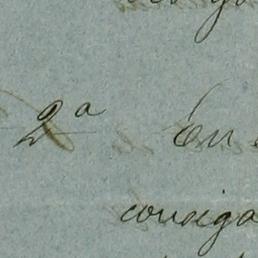 2ª En
consiga